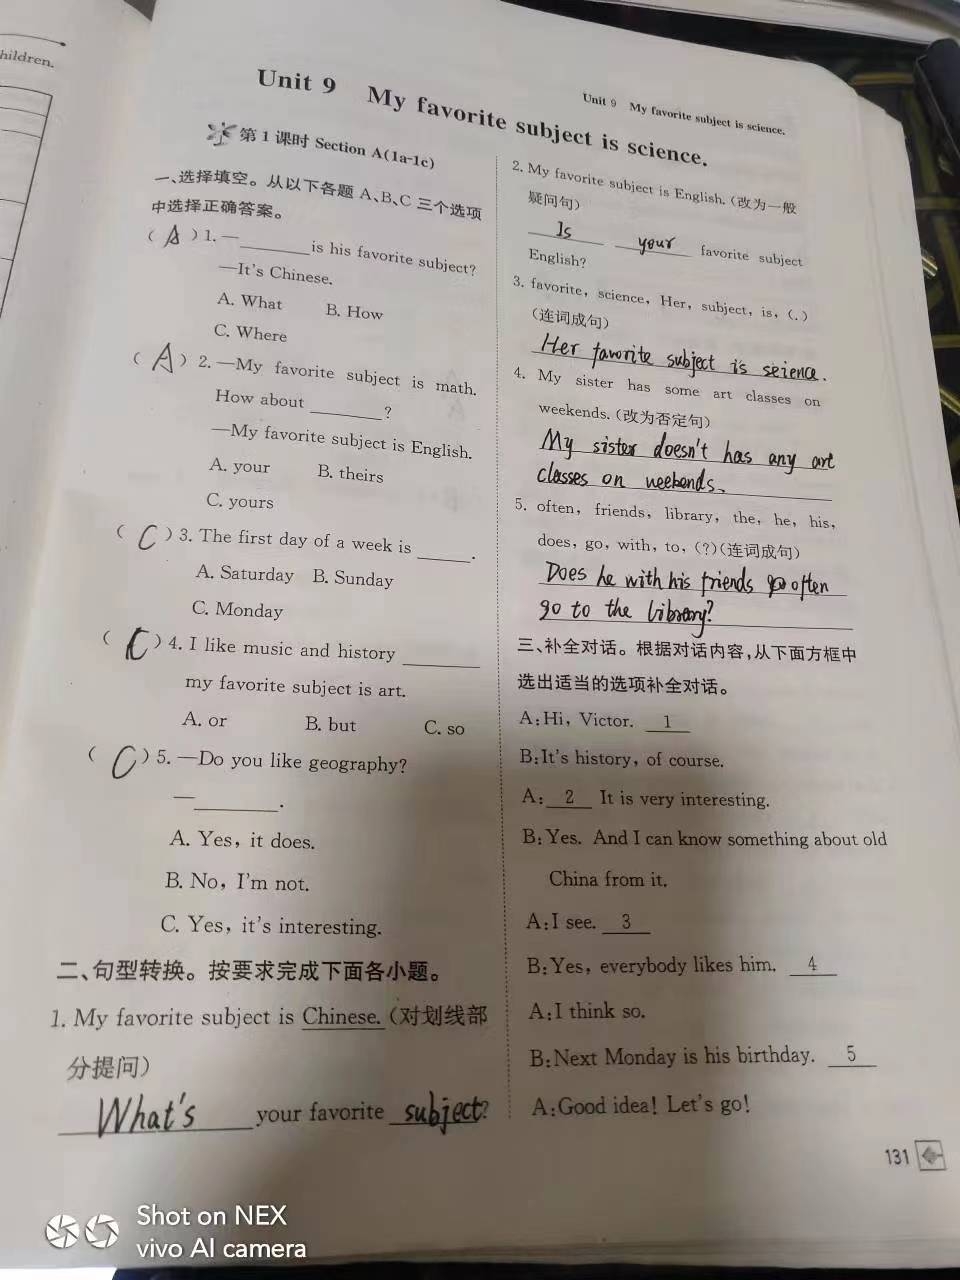 hildren.
Unit 9 My favorite subject is science.
Unit 9 My favorite subject is science.
第1课时 Section A(1a-1c)
一、选择填空。从以下各题 A、B、C 三个选项
中选择正确答案。
( A )1. —______ is his favorite subject?
—It's Chinese.
A. What B. How
C. Where
( A )2. —My favorite subject is math.
How about ______?
—My favorite subject is English.
A. your B. theirs
C. yours
( C )3. The first day of a week is ______.
A. Saturday B. Sunday
C. Monday
( C )4. I like music and history ______
my favorite subject is art.
A. or B. but C. so
( C )5. —Do you like geography?
—______.
A. Yes, it does.
B. No, I'm not.
C. Yes, it's interesting.
二、句型转换。按要求完成下面各小题。
1. My favorite subject is Chinese. (对划线部
分提问)
What's your favorite subject?
2. My favorite subject is English. (改为一般
疑问句)
Is your favorite subject
English?
3. favorite, science, Her, subject, is, (.)
(连词成句)
Her favorite subject is seience.
4. My sister has some art classes on
weekends. (改为否定句)
My sister doesn't has any art
classes on weekends.
5. often, friends, library, the, he, his,
does, go, with, to, (?)(连词成句)
Does he with his friends often
go to the library?
三、补全对话。根据对话内容,从下面方框中
选出适当的选项补全对话。
A: Hi, Victor. 1
B: It's history, of course.
A: 2 It is very interesting.
B: Yes. And I can know something about old
China from it.
A: I see. 3
B: Yes, everybody likes him. 4
A: I think so.
B: Next Monday is his birthday. 5
A: Good idea! Let's go!
131
Shot on NEX
vivo AI camera